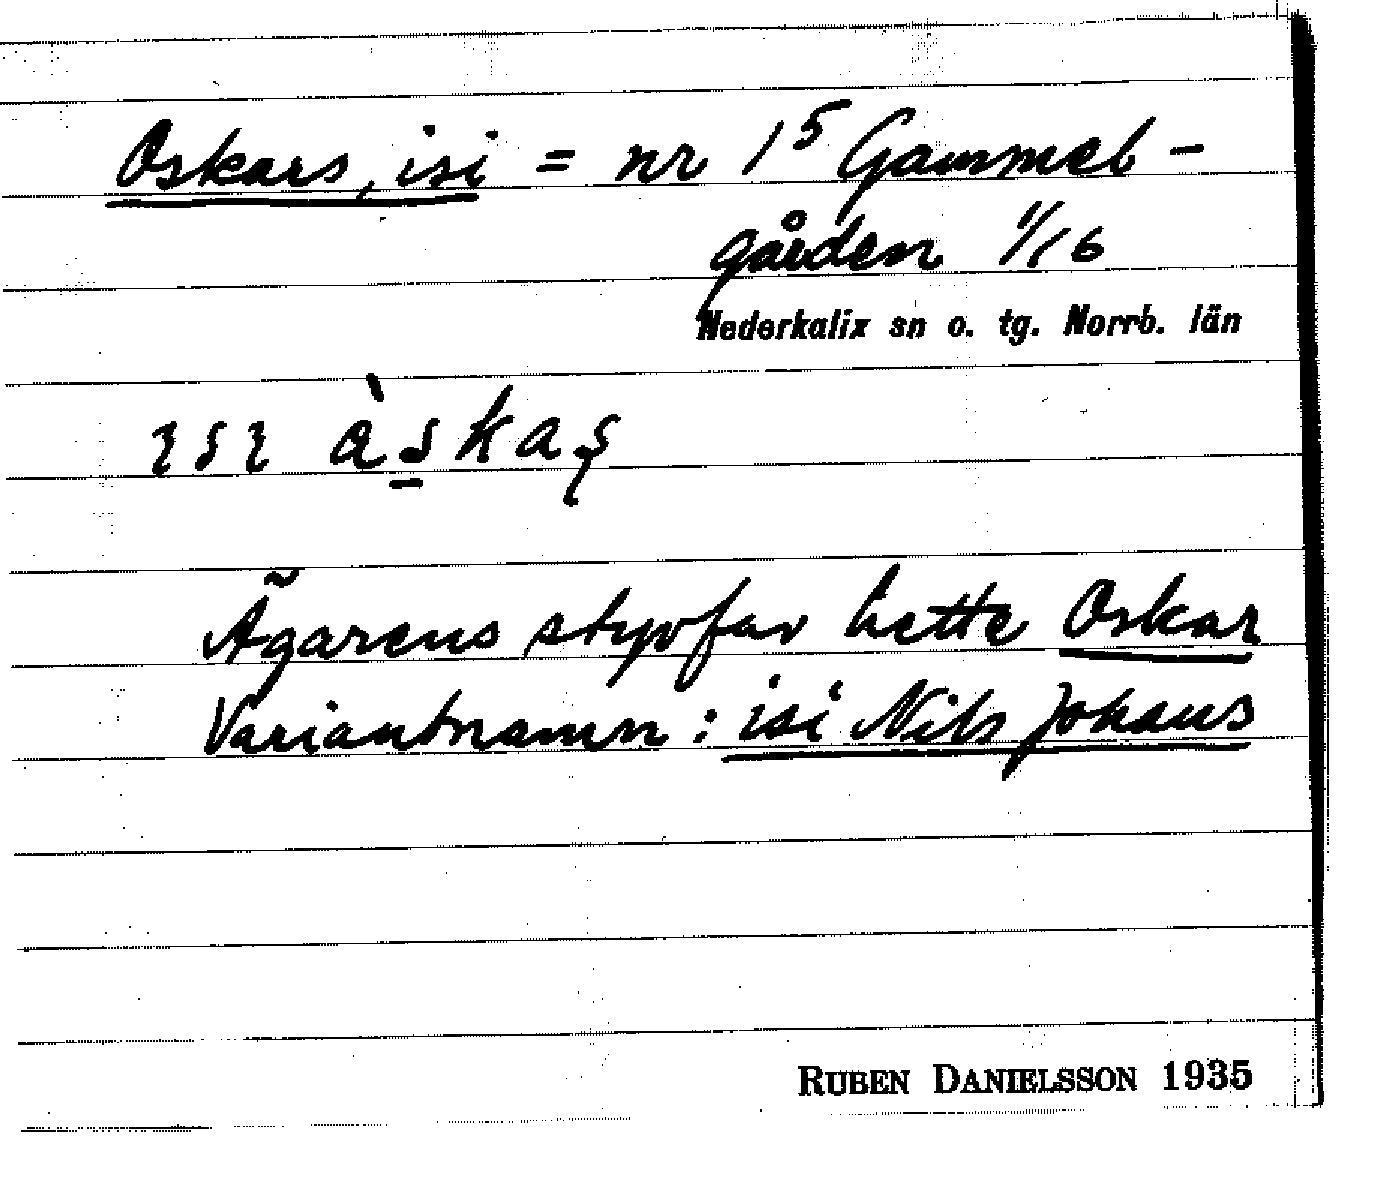 Oskars, isi = nr 1⁵ Gammel-
gården 1/16
Nederkalix sn o. tg. Norrb. län
ɪsɪ às̱kaş
Ägarens styvfar hette Oskar
Variantnamn : isi Nils Johans
RUBEN DANIELSSON 1935